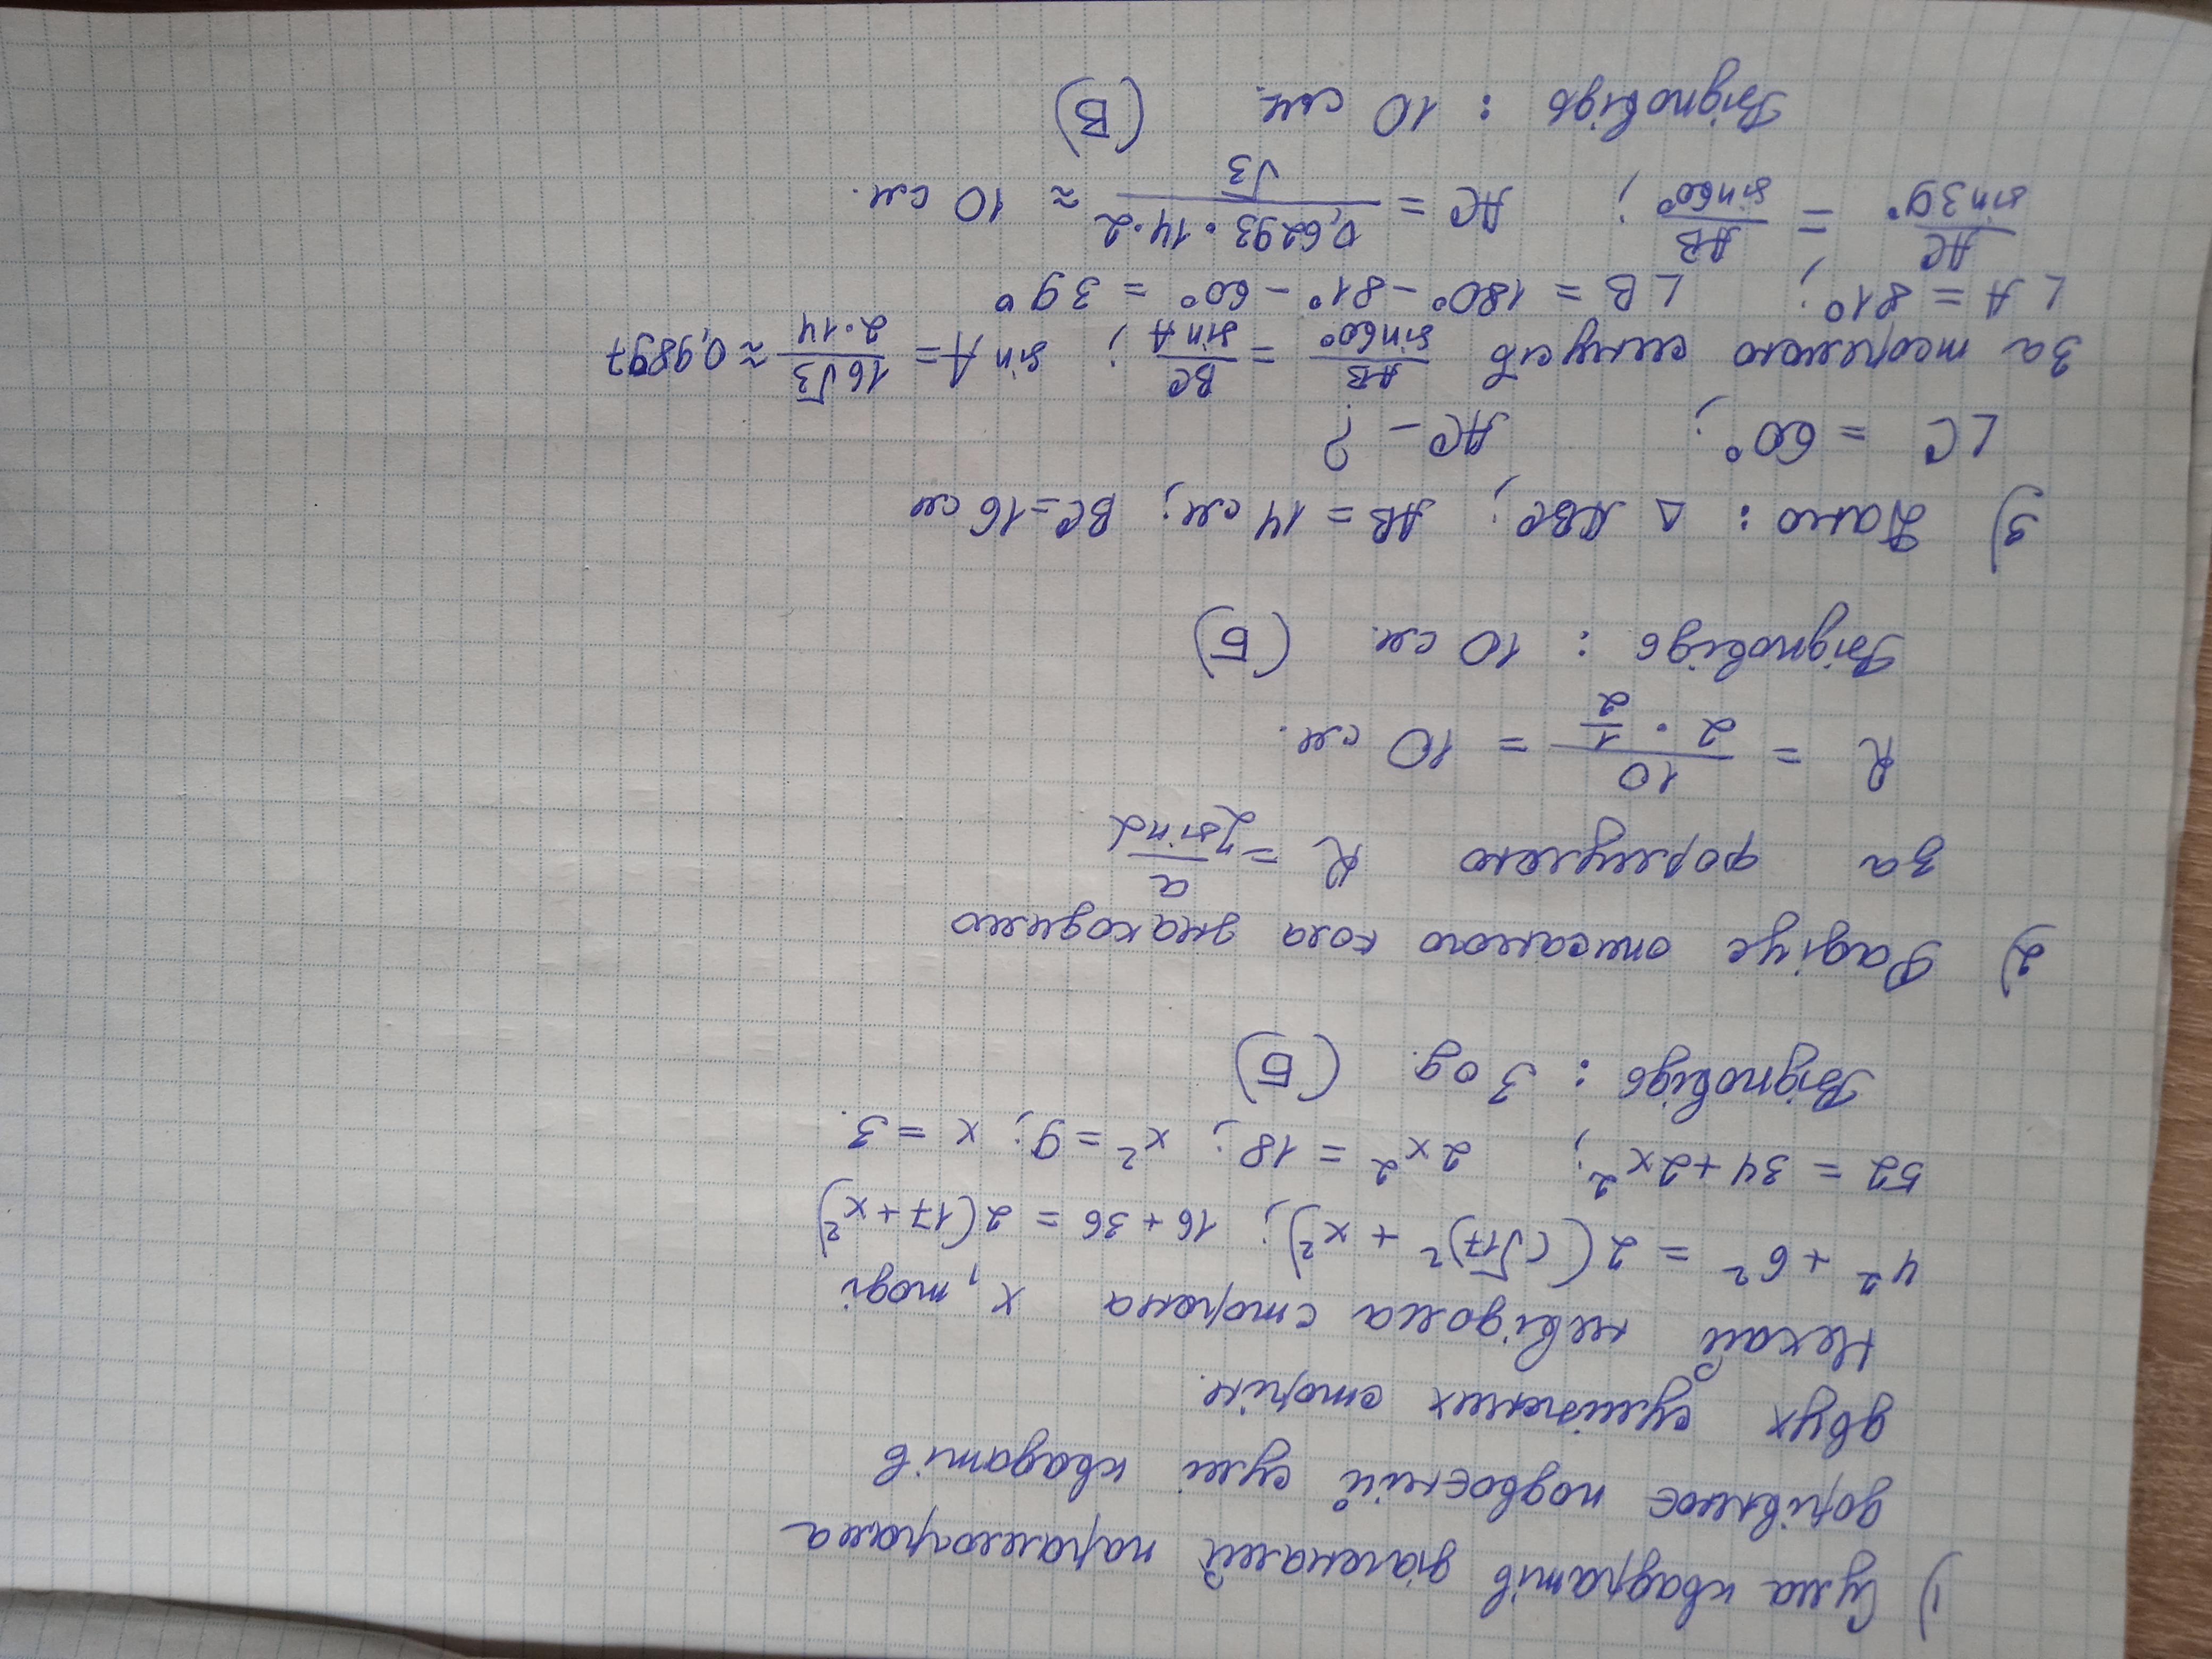 1) Сума квадратів діагоналей паралелограма
дорівнює подвоєній сумі квадатів
двух суміжних сторін.
Нехай невідома сторона x, тоді
4² + 6² = 2((√17)² + x²); 16 + 36 = 2(17 + x²)
52 = 34 + 2x²; 2x² = 18; x² = 9; x = 3.
Відповідь: 3 од. (Б)
2) Радіус описаного кола знаходимо
за формулою R = a / 2sinα
R = 10 / (2 · 1/2) = 10 см.
Відповідь: 10 см. (Б)
3) Дано: △ ABC; AB = 14 см; BC = 16 см
∠C = 60°; AC - ?
За теоремою синусів AB/sin60° = BC/sinA; sin A = 16√3 / 2·14 ≈ 0,9897
∠A = 81°; ∠B = 180° - 81° - 60° = 39°
AC/sin39° = AB/sin60°; AC = 0,6293 · 14 · 2 / √3 ≈ 10 см.
Відповідь: 10 см. (В)